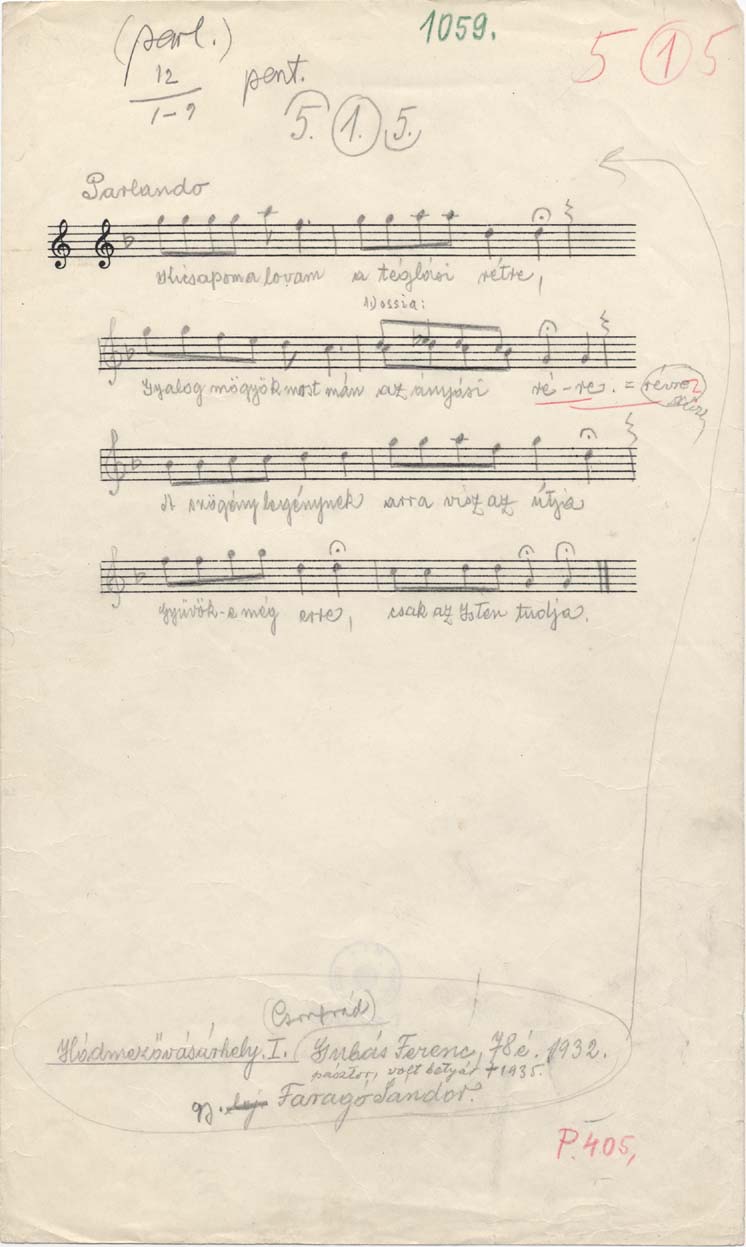 1059.
(parl.)
5 1 5
12
1-9
pent.
5. 1. 5.
Parlando
Kicsapom a lovam a téglási rétre,
1) ossia:
Gyalog mögyök most mán az ányási ré-re. = révre
A szögény legénynek arra visz az útja
Gyüvök-e még erre, csak az Isten tudja.
(Csongrád)
Hódmezővásárhely. I. Gulyás Ferenc, 78 é. 1932.
pásztor, volt betyár +1935.
gy. Faragó Sándor.
P. 405,